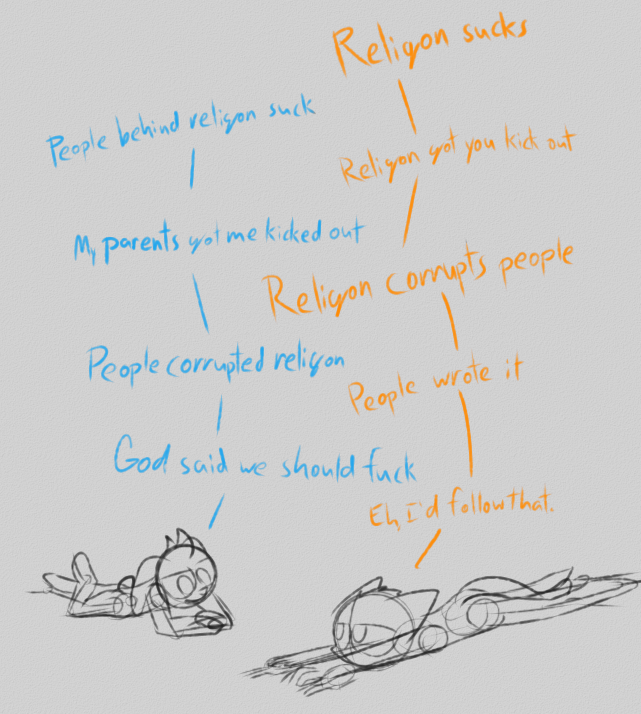 Religon sucks
People behind religon suck
Religon got you kick out
My parents got me kicked out
Religon corrupts people
People corrupted religon
People wrote it
God said we should fuck
Eh, I'd follow that.